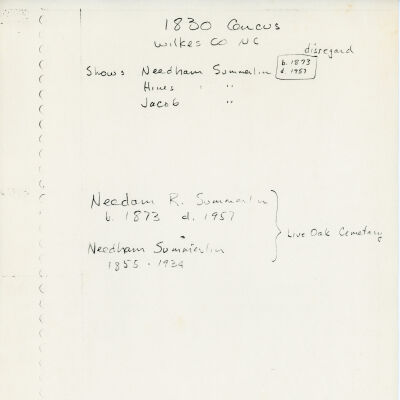 1830 Cencus
Wilkes CO NC
disregard
Shows Needham Summerlin b. 1873 d. 1957
Hines " "
Jacob "
Needam R. Summerlin
b. 1873 d. 1957
Live Oak Cemetary
Needham Summerlin
1855 - 1934